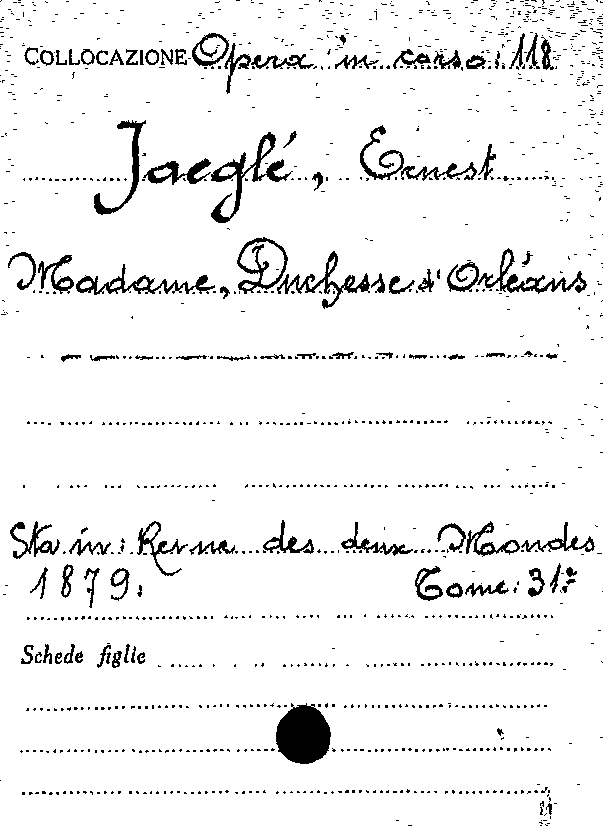 COLLOCAZIONE Opera in corso: 118
Jaeglé, Ernest.
Madame, Duchesse d'Orléans
Sta in: Revue des deux Mondes
1879. Tome: 31º
Schede figlie